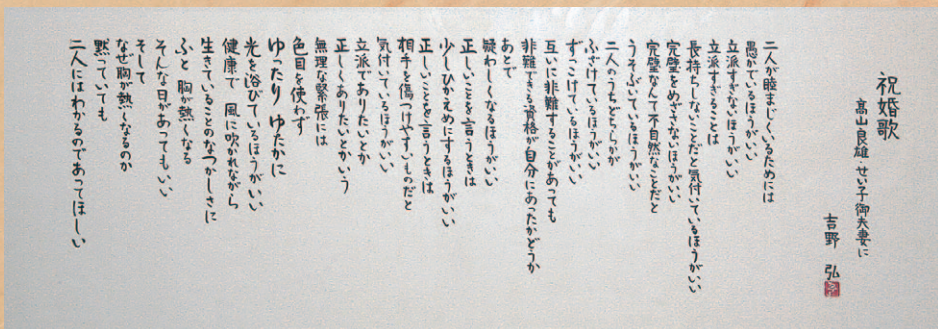 祝婚歌
高山良雄・せい子御夫妻に
吉野 弘
二人が睦まじくいるためには
愚かでいるほうがいい
立派すぎないほうがいい
立派すぎることは
長持ちしないことだと気付いているほうがいい
完璧をめざさないほうがいい
完璧なんて不自然なことだと
うそぶいているほうがいい
二人のうちどちらかが
ふざけているほうがいい
ずっこけているほうがいい
互いに非難することがあっても
非難できる資格が自分にあったかどうか
あとで
疑わしくなるほうがいい
正しいことを言うときは
少しひかえめにするほうがいい
正しいことを言うときは
相手を傷つけやすいものだと
気付いているほうがいい
立派でありたいとか
正しくありたいとかいう
無理な緊張には
色目を使わず
ゆったり ゆたかに
光を浴びているほうがいい
健康で 風に吹かれながら
生きていることのなつかしさに
ふと 胸が熱くなる
そんな日があってもいい
そして
なぜ胸が熱くなるのか
黙っていても
二人にはわかるのであってほしい